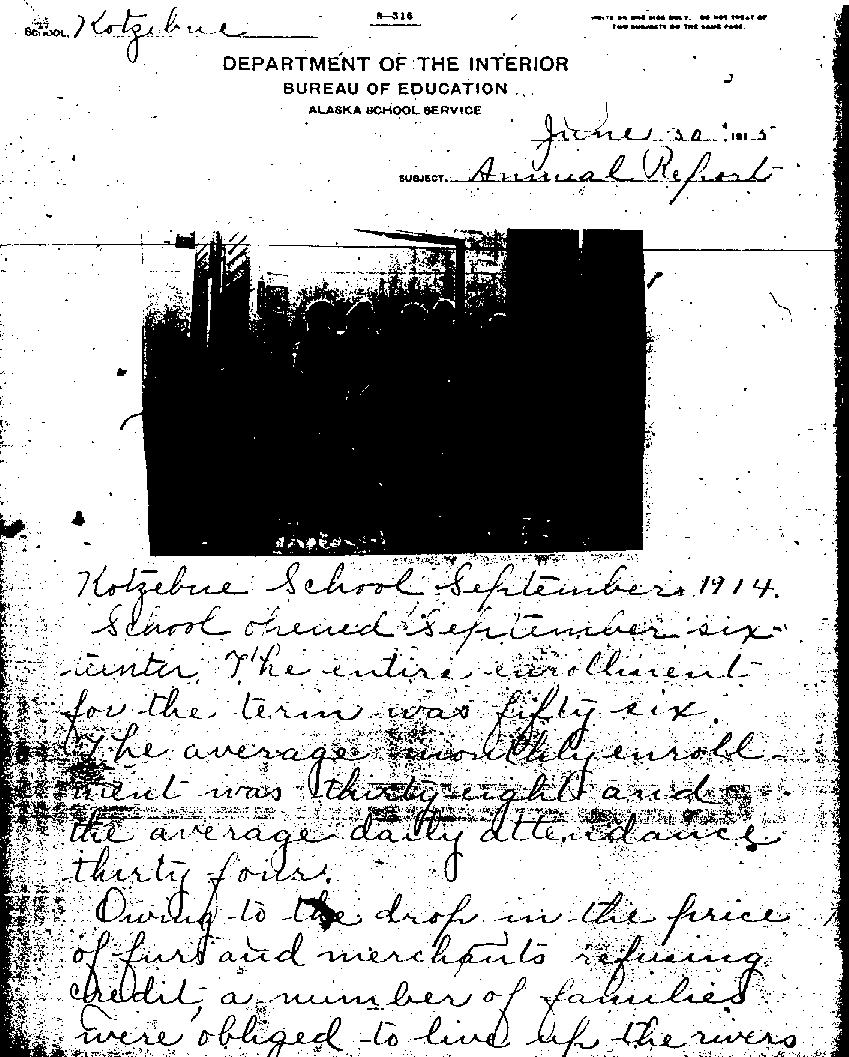 SCHOOL, Kotzebue
6-316
WRITE ON ONE SIDE ONLY. DO NOT TREAT OF
TWO SUBJECTS ON THE SAME PAGE.
DEPARTMENT OF THE INTERIOR
BUREAU OF EDUCATION
ALASKA SCHOOL SERVICE
June 30, 1915
SUBJECT, Annual Report
Kotzebue School September, 1914.
School opened September six-
teenth. The entire enrollment
for the term was fifty six.
The average monthly enroll-
ment was thirty eight and
the average daily attendance
thirty four.
Owing to the drop in the price
of furs and merchants refusing
credit, a number of families
were obliged to live up the rivers